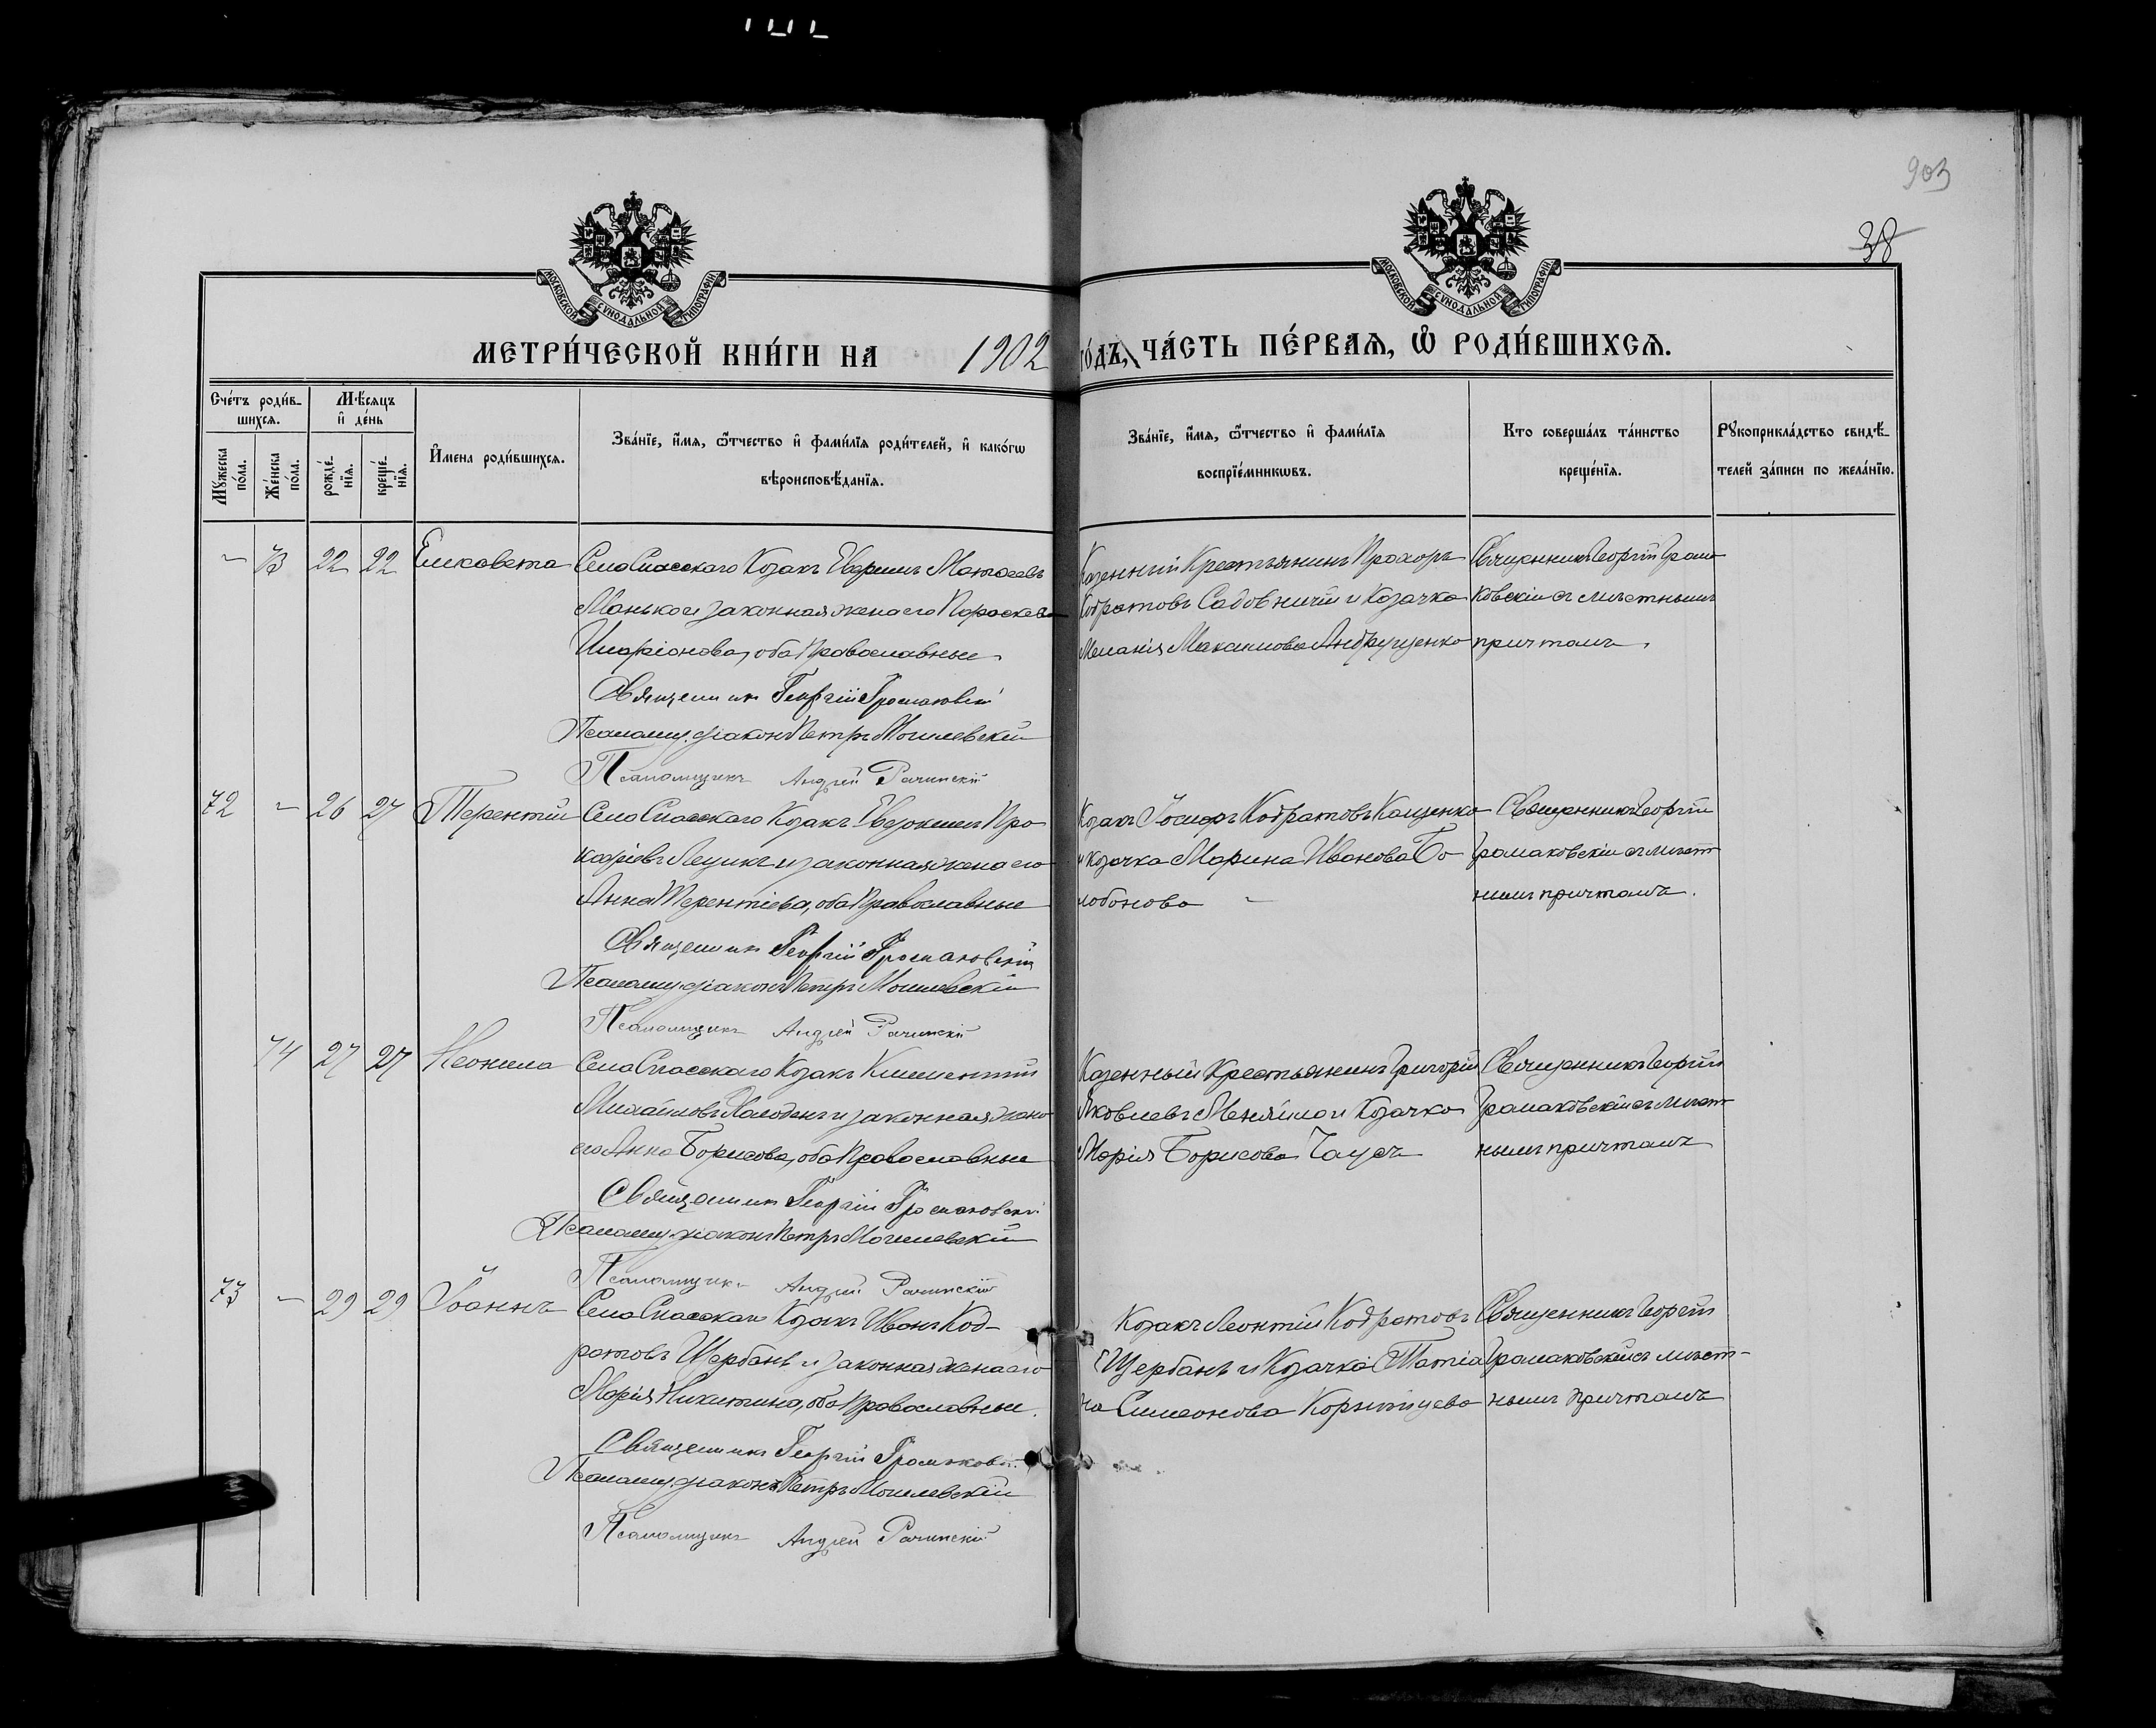 903
38
МОСКОВСКОЙ СУНОДАЛЬНОЙ ТИПОГРАФІИ
МОСКОВСКОЙ СУНОДАЛЬНОЙ ТИПОГРАФІИ
МЕТРИ́ЧЕСКОЙ КНИ́ГИ НА 1902 ГО́ДЪ, ЧА́СТЬ ПЕ́РВАЯ, Ѡ҆ РОДИ́ВШИХСЯ.
Сче́тъ роди́в-
шихся.
Мꙋ́жеска по́ла.
Же́нска по́ла.
Мѣ́сяцъ и҆ де́нь
рожде́-нїя.
креще́-нїя.
И҆мена роди́вшихся.
Зва́нїе, и҆́мя, ѻ҆́тчество и҆ фами́лїя роди́телей, и҆ како́гѡ
вѣроисповѣ́данїя.
Зва́нїе, и҆́мя, ѻ҆́тчество и҆ фами́лїя
воспрїе́мникѡвъ.
Кто соверша́лъ та́инство
креще́нїя.
Рꙋкоприкла́дство свидѣ́-
телей за́писи по жела́нїю.
— 73 22 22 Елисавета Села Спасскаго Козакъ Евфимъ Матѳеевъ
Манько и законная жена его Параскева
Иларіонова, оба Православные.
Священник Георгій Громаковскій
Псаломщ. діаконъ Петръ Могилевскій
Псаломщикъ Андрей Рачинскій
Казенный Крестьянинъ Прохоръ
Кодратовъ Садовничій и Козачка
Меланія Максимова Андрущенко
Священникъ Георгій Грома
ковскій съ мѣстнымъ
причтомъ.
72 — 26 27 Терентій Села Спасскаго Козакъ Евдокимъ Про
кофіевъ Лещикъ и законная жена его
Анна Терентіева, оба Православные
Священник Георгій Громаковскій
Псаломщ. діаконъ Петръ Могилевскій
Псаломщикъ Андрей Рачинскій
Козакъ Іосифъ Кодратовъ Кащенко
и козачка Марина Иванова Бо
лобонова
Священникъ Георгій
Громаковскій съ мѣст
нымъ причтомъ.
74 27 27 Неонила Села Спасскаго Козакъ Климентій
Михайловъ Холоденъ и законная жена
его Анна Борисова, оба Православные
Священник Георгій Громаковскій
Псаломщ. діаконъ Петръ Могилевскій
Псаломщикъ Андрей Рачинскій
Казенный Крестьянинъ Григорій
Яковлевъ Меняйло и Козачка
Марія Борисова Чаусъ
Священникъ Георгій
Громаковскій съ мѣст
нымъ причтомъ
73 — 29 29 Іоаннъ Села Спасскаго Козакъ Иванъ Код-
ратовъ Щербань и законная жена его
Марія Никитина, оба Православные.
Священник Георгій Громаковскій
Псаломщ. діаконъ Петръ Могилевскій
Псаломщикъ Андрей Рачинскій
Козакъ Леонтій Кодратовъ
Щербань и Козачка Татіа
на Симеонова
Священникъ Георгій
Громаковскій съ мѣст-
нымъ причтомъ